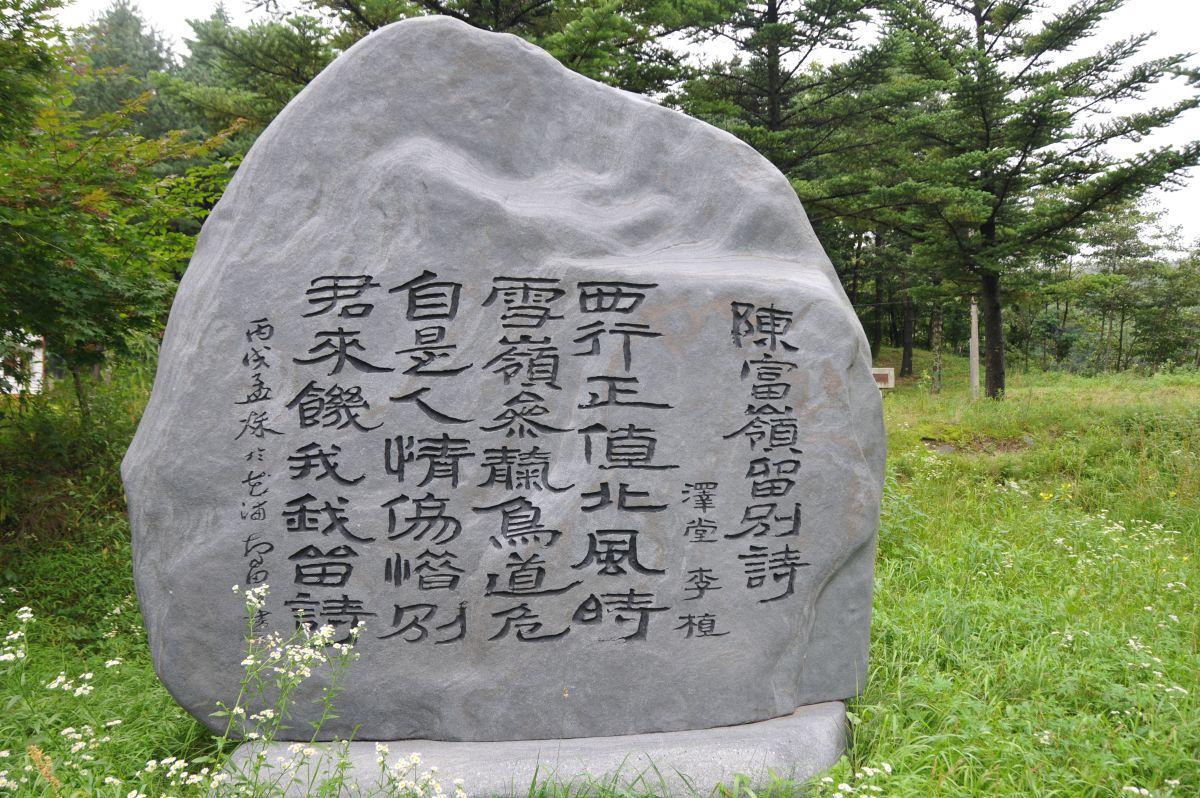 陳富嶺留別詩
澤堂 李植
西行正値北風時
雪嶺參靝鳥道危
自是人情傷惜別
君來餞我我留詩
丙戌孟秌於